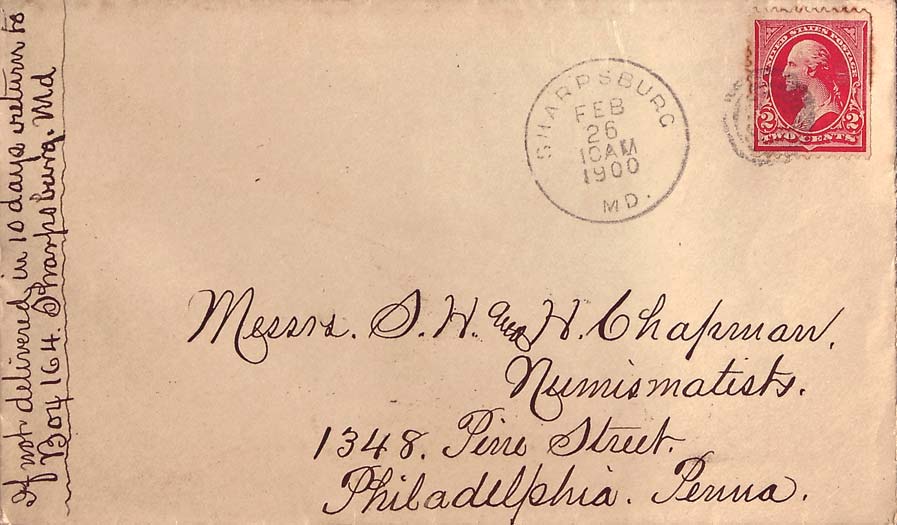 If not delivered in 10 days return to
Box 164. Sharpsburg. Md
SHARPSBURG
FEB
26
10AM
1900
MD.
UNITED STATES POSTAGE
2 2
TWO CENTS
Messrs. S. H. and H. Chapman,
Numismatists.
1348. Pine Street.
Philadelphia. Penna.